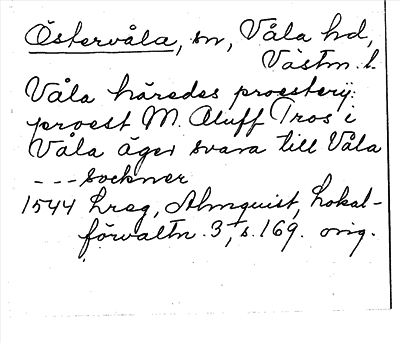 Östervåla, sn, Våla hd,
Västm. l.
Våla häredes proesterij:
proest M. Aluff Tros i
Våla äger svara till Våla
--- sockner
1544 Lreg, Almquist, Lokal-
förvaltn. 3, s. 169. orig.